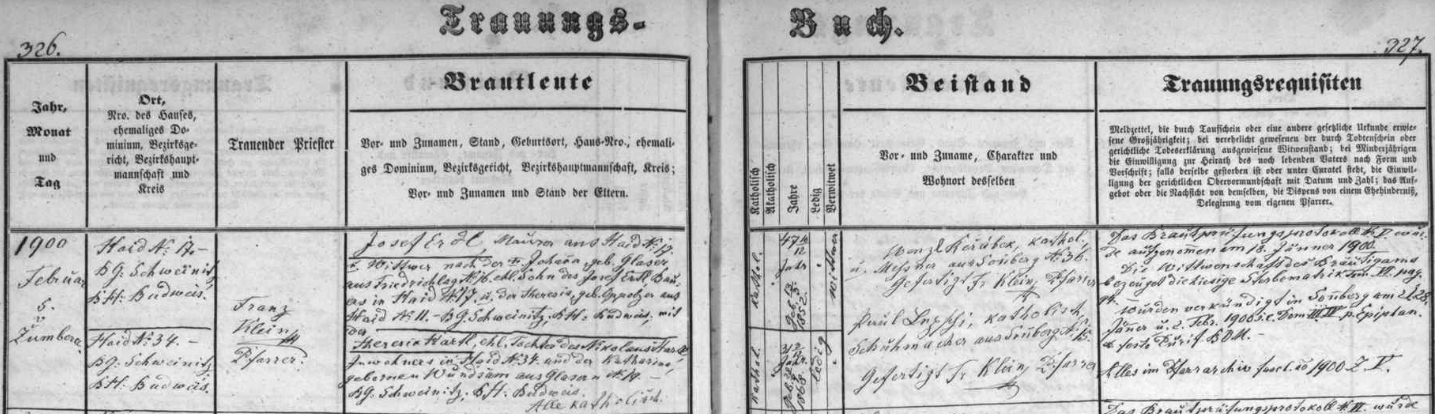 Trauungs-Buch.
326.
327.
Jahr,
Monat
und
Tag
Ort,
Nro. des Hauses,
ehemaliges Do-
minium, Bezirksge-
richt, Bezirkshaupt-
mannschaft und
Kreis
Trauender Priester
Brautleute
Vor- und Zunamen, Stand, Geburtsort, Haus-Nro., ehemali-
ges Dominium, Bezirksgericht, Bezirkshauptmannschaft, Kreis;
Vor- und Zunamen und Stand der Eltern.
Katholisch
Akatholisch
Jahre
Ledig
Verwitwet
Beistand
Vor- und Zuname, Charakter und
Wohnort desselben
Trauungsrequisiten
Meldzettel, die durch Taufschein oder eine andere gesetzliche Urkunde erwie-
sene Großjährigkeit; bei verehelicht gewesenen der durch Todtenschein oder
gerichtliche Todeserklärung ausgewiesene Witwenstand; bei Minderjährigen
die Einwilligung zur Heirath des noch lebenden Vaters nach Form und
Vorschrift; falls derselbe gestorben ist oder unter Curatel steht, die Einwil-
ligung der gerichtlichen Obervormundschaft mit Datum und Zahl; das Auf-
gebot oder die Nachsicht von demselben, die Dispens von einem Ehehinderniß,
Delegirung vom eigenen Pfarrer.
1900
Februar
Haid No 17.
BG. Schweinitz
BH. Budweis.
Haid No 34.
BG. Schweinitz
BH. Budweis.
Franz
Klein
Pfarrer.
Josef Erdl, Maurer aus Haid No 17.
Wittwer nach der Johana, geb. Glaser
aus Friedrichslag No 16, ehl. Sohn des Josef Erdl
in Haid No 17 u. der Theresia, geb. aus
Haid No 11. BG. Schweinitz, BH. Budweis, mit
der
Theresia Hartl, ehl. Tochter des Nikolaus Hartl
Inwohner in Haid No 34 und der Katharina,
gebornen Wundsam aus Glasern No 14
BG. Schweinitz, BH. Budweis.
Alle katholisch.
kathol.
47
Jahr
geb.
1852
Wittwer
kathol.
Jahr.
1868
ledig
Wenzl Keräbek, kathol.
u. Messner aus Sonberg No 36.
Gefertigt Fr. Klein, Pfarrer
Paul katholisch,
Schuhmacher aus Sonberg No
Gefertigt Fr. Klein Pfarrer
Das Brautprüfungsprotokoll No V wur-
de aufgenomen am 18. Jänner 1900.
Die Wittwenschaft des Bräutigams
bezeugt die hiesige Sterbematrik Tom. VI pag.
wurden verkündigt in Sonberg am 28
Jäner u. 2. Febr. 1900 i.e. Dom. III, IV p. Epiphan.
Alles im Pfarrarchiv fascl. ad 1900 Z. V.
Das Brautprüfungsprotokoll No VI wurde